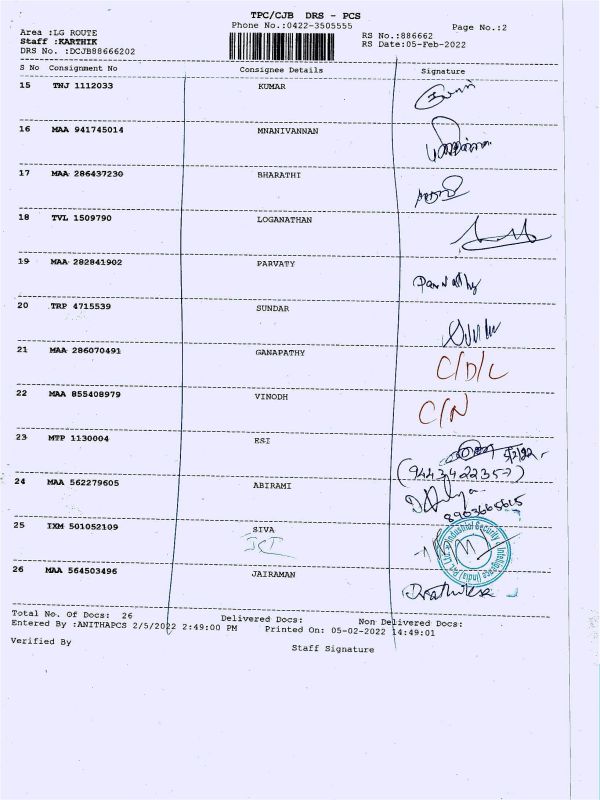 TPC/CJB DRS - PCS
Phone No.:0422-3505555
Page No.:2
Area :LG ROUTE
Staff :KARTHIK
DRS No. :DCJB88666202
RS No.:886662
RS Date:05-Feb-2022
S No Consignment No Consignee Details Signature
15 TNJ 1112033 KUMAR
16 MAA 941745014 MNANIVANNAN
17 MAA 286437230 BHARATHI
18 TVL 1509790 LOGANATHAN
19 MAA 282841902 PARVATY Parvathy
20 TRP 4715539 SUNDAR
21 MAA 286070491 GANAPATHY C/D/L
22 MAA 855408979 VINODH C/N
23 MTP 1130004 ESI
(9443422357)
24 MAA 562279605 ABIRAMI
8903665615
25 IXM 501052109 SIVA
26 MAA 564503496 JAIRAMAN
Total No. Of Docs: 26 Delivered Docs: Non Delivered Docs:
Entered By :ANITHAPCS 2/5/2022 2:49:00 PM Printed On: 05-02-2022 14:49:01
Verified By
Staff Signature